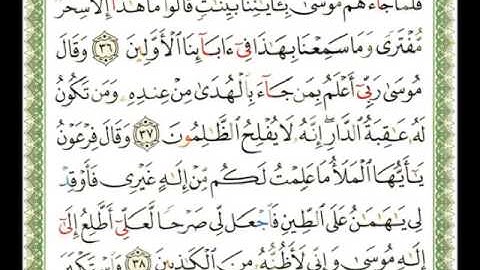 فَلَمَّا جَآءَهُم مُّوسَىٰ بِـَٔايَٰتِنَا بَيِّنَٰتٍ قَالُوا۟ مَا هَٰذَآ إِلَّا سِحْرٌ
مُّفْتَرًى وَمَا سَمِعْنَا بِهَٰذَا فِىٓ ءَابَآئِنَا ٱلْأَوَّلِينَ ٣٦ وَقَالَ
مُوسَىٰ رَبِّىٓ أَعْلَمُ بِمَن جَآءَ بِٱلْهُدَىٰ مِنْ عِندِهِۦ وَمَن تَكُونُ
لَهُۥ عَٰقِبَةُ ٱلدَّارِ ۖ إِنَّهُۥ لَا يُفْلِحُ ٱلظَّٰلِمُونَ ٣٧ وَقَالَ فِرْعَوْنُ
يَٰٓأَيُّهَا ٱلْمَلَأُ مَا عَلِمْتُ لَكُم مِّنْ إِلَٰهٍ غَيْرِى فَأَوْقِدْ
لِى يَٰهَٰمَٰنُ عَلَى ٱلطِّينِ فَٱجْعَل لِّى صَرْحًا لَّعَلِّىٓ أَطَّلِعُ إِلَىٰٓ
إِلَٰهِ مُوسَىٰ وَإِنِّى لَأَظُنُّهُۥ مِنَ ٱلْكَٰذِبِينَ ٣٨ وَٱسْتَكْبَرَ